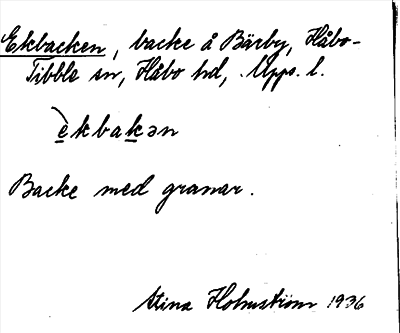 Ekbacken, backe å Bärby, Håbo-
Tibble sn, Håbo hd, Upps. l.
èkbakən
Backe med granar.
Stina Holmström 1936